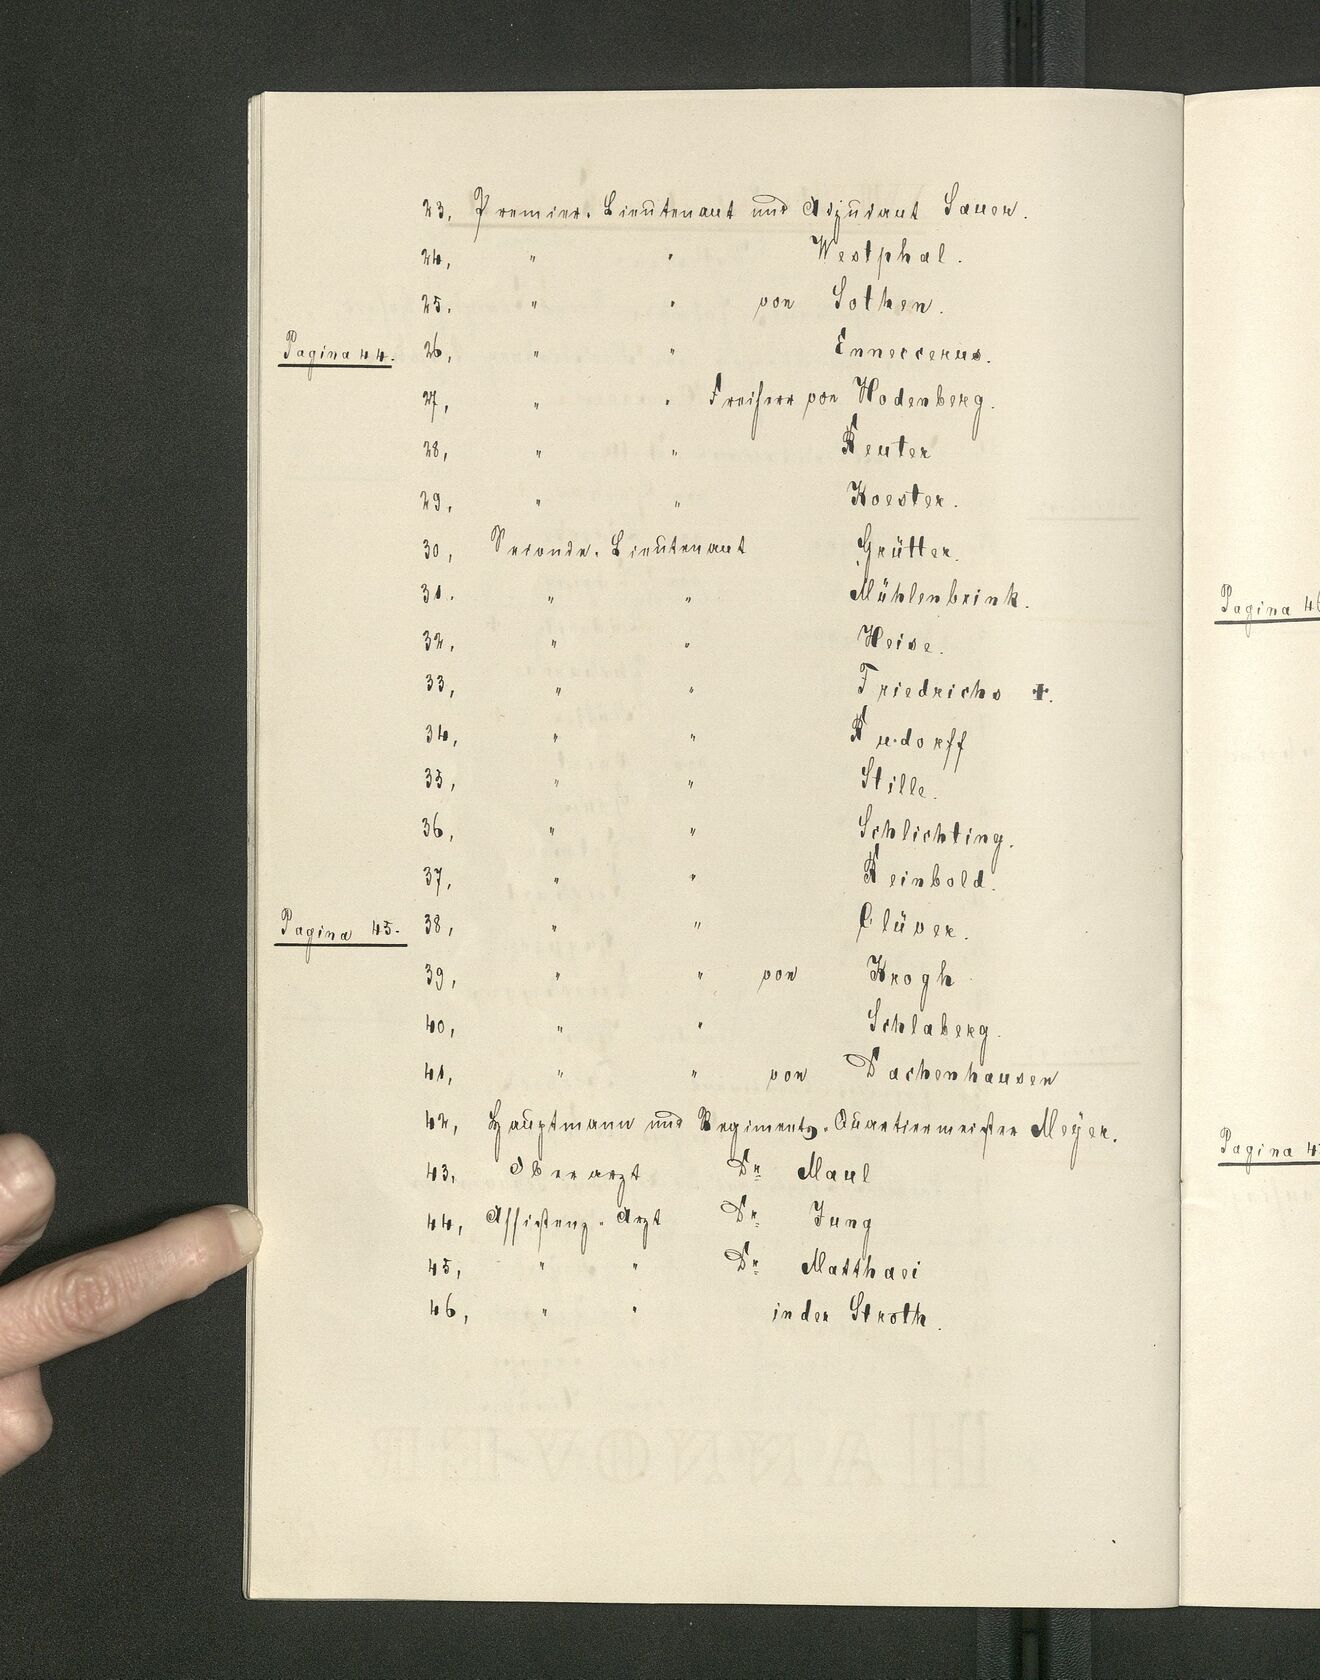 23, Premier-Lieutenant und Adjudant Sauer.
24, " " Westphal.
25. " " von Sothen.
Pagina 44. 26, " " Enneccerus.
27, " " Freiherr von Hodenberg.
28, " " Reuter
29, " " Koester.
30, Seconde-Lieutenant Grütter.
31. " " Mühlenbrink.
32, " " Heise.
33, " " Friedrichs +.
34, " " Rudorff
35, " " Stille.
36, " " Schlichting.
37, " " Reinbold.
Pagina 45. 38, " " Clüver.
39, " " von Krogh
40, " " Schlaberg.
41, " " von Dachenhausen
42, Hauptmann und Regiments-Quartiermeister Meÿer.
43, Oberarzt Dr Maul
44, Assistenz-Arzt Dr Jung
45, " " Dr Matthaei
46, " " in der Stroth.
Pagina 46
Pagina 4